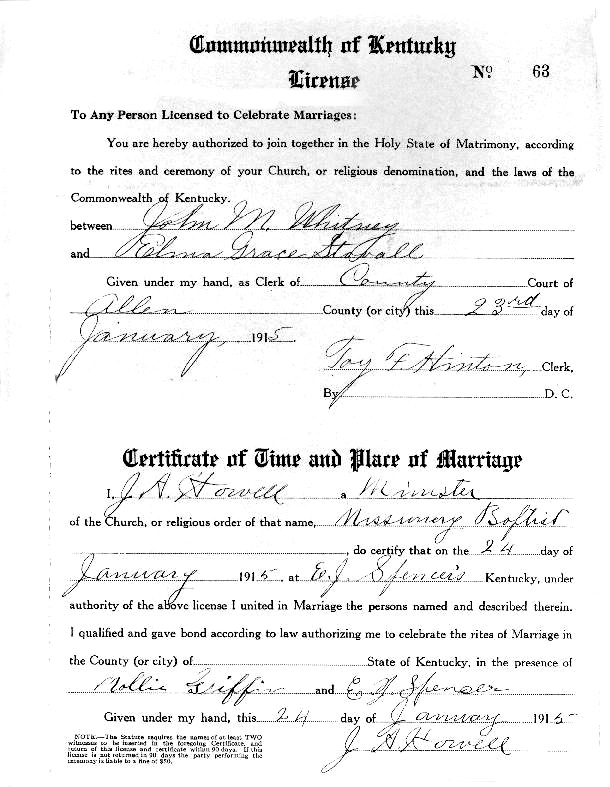 Commonwealth of Kentucky
License
No. 63
To Any Person Licensed to Celebrate Marriages:
You are hereby authorized to join together in the Holy State of Matrimony, according
to the rites and ceremony of your Church, or religious denomination, and the laws of the
Commonwealth of Kentucky.
between John M. Whitney
and Elma Grace Stovall
Given under my hand, as Clerk of County Court of
Allen County (or city) this 23rd day of
January, 1915.
Toy F Hinton, Clerk,
By D. C.
Certificate of Time and Place of Marriage
I, J. A. Howell a Minister
of the Church, or religious order of that name, Missionary Baptist
, do certify that on the 24 day of
January 1915, at E. J. Spencer's Kentucky, under
authority of the above license I united in Marriage the persons named and described therein.
I qualified and gave bond according to law authorizing me to celebrate the rites of Marriage in
the County (or city) of State of Kentucky, in the presence of
Nollie Griffin and E. J. Spenser
Given under my hand, this 24 day of January 1915
J A Howell
NOTE.—The Statute requires the names of at least TWO
witnesses to be inserted in the foregoing Certificate, and
return of this license and certificate within 90 days. If this
license is not returned in 90 days the party performing the
ceremony is liable to a fine of $50.